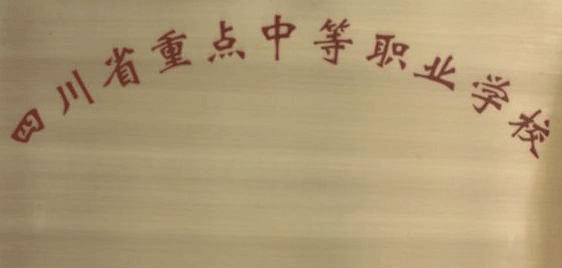 四川省重点中等职业学校